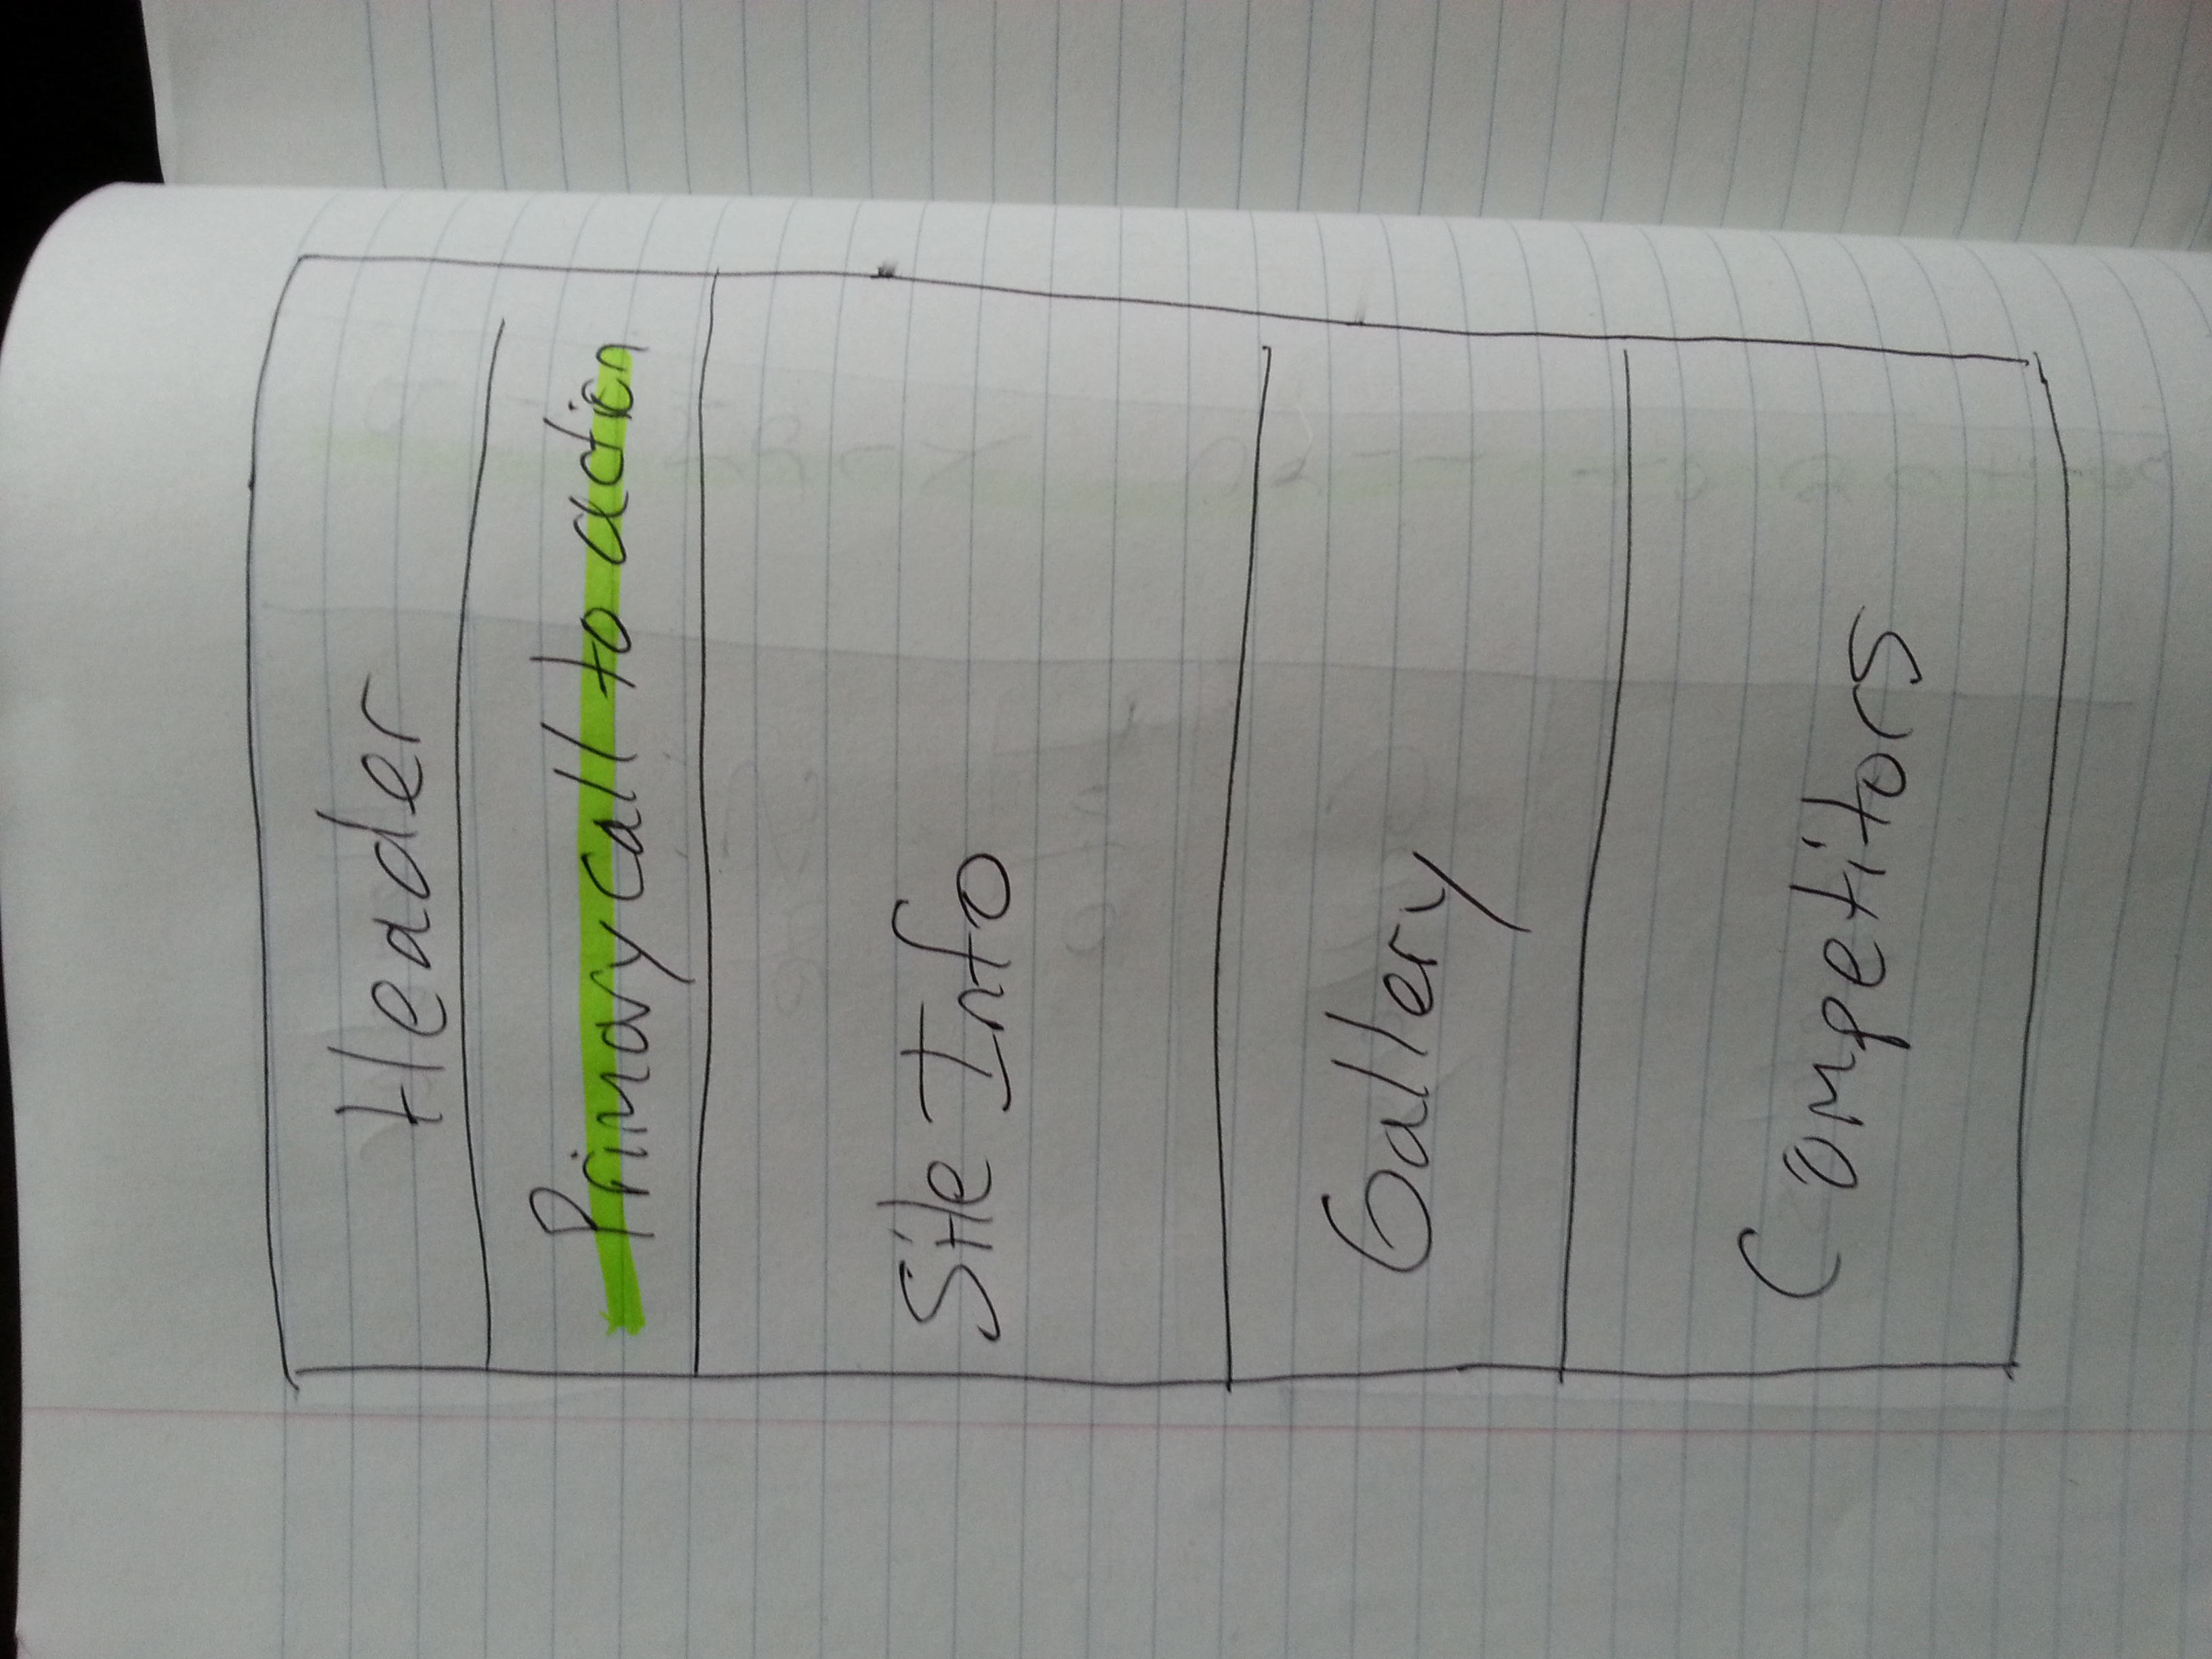 Header
Primary call to action
Site Info
Gallery
Competitors